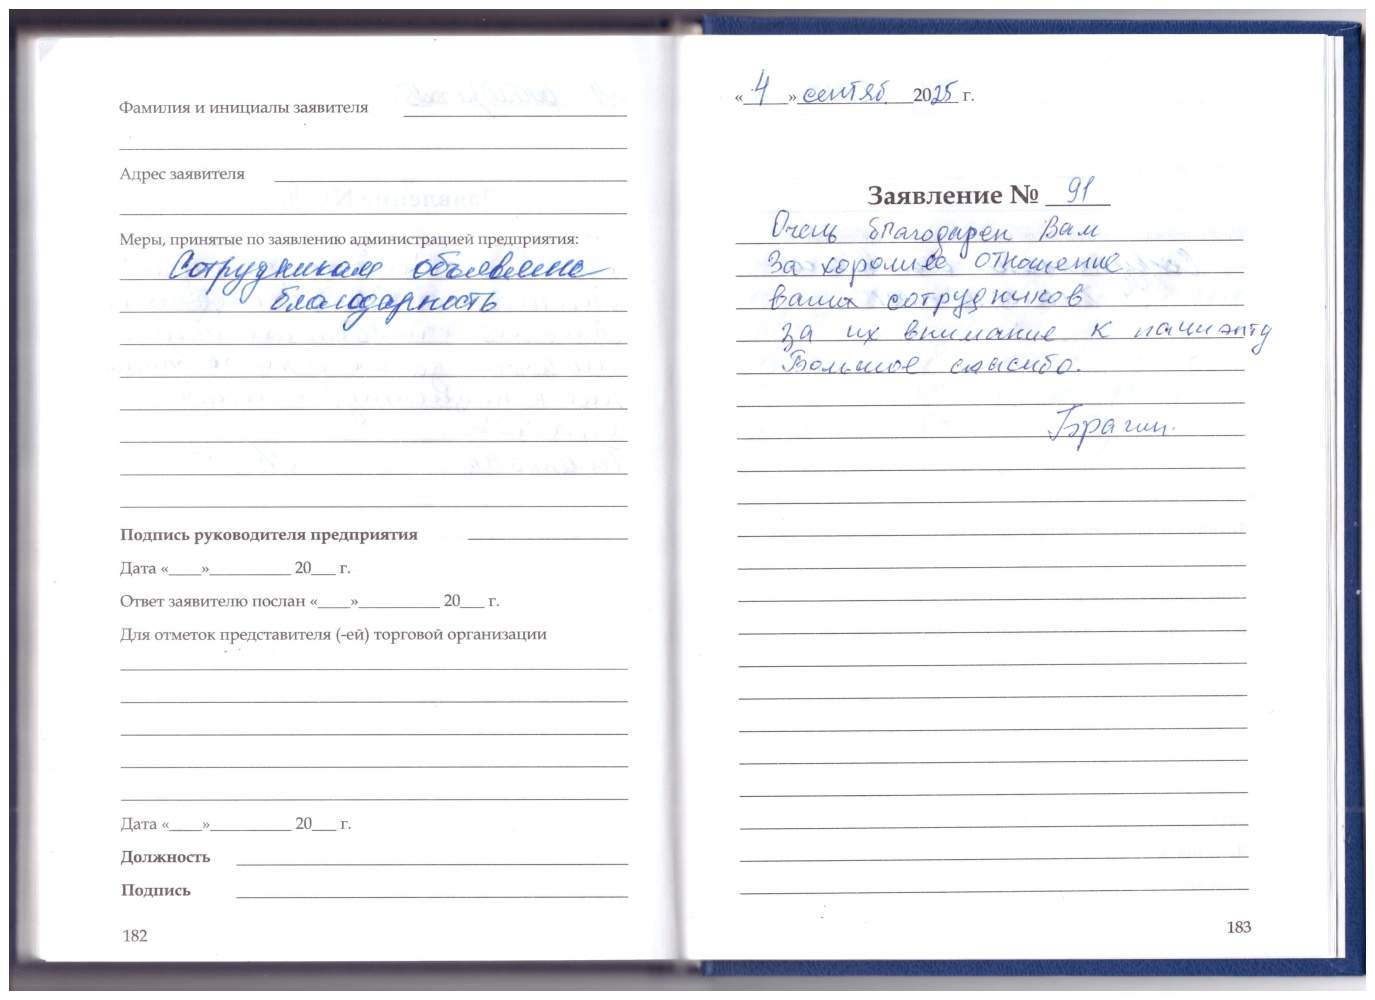 Фамилия и инициалы заявителя
Адрес заявителя
Меры, принятые по заявлению администрацией предприятия:
Сотрудникам объявлена
благодарность
Подпись руководителя предприятия
Дата «____»__________ 20___ г.
Ответ заявителю послан «____»__________ 20___ г.
Для отметок представителя (-ей) торговой организации
Дата «____»__________ 20___ г.
Должность
Подпись
182
«4» сентяб 2025 г.
Заявление № 91
Очень благодарен Вам
За хорошее отношение
ваших сотрудников
за их внимание к пациэнту
Большое спасибо.
Брагин.
183